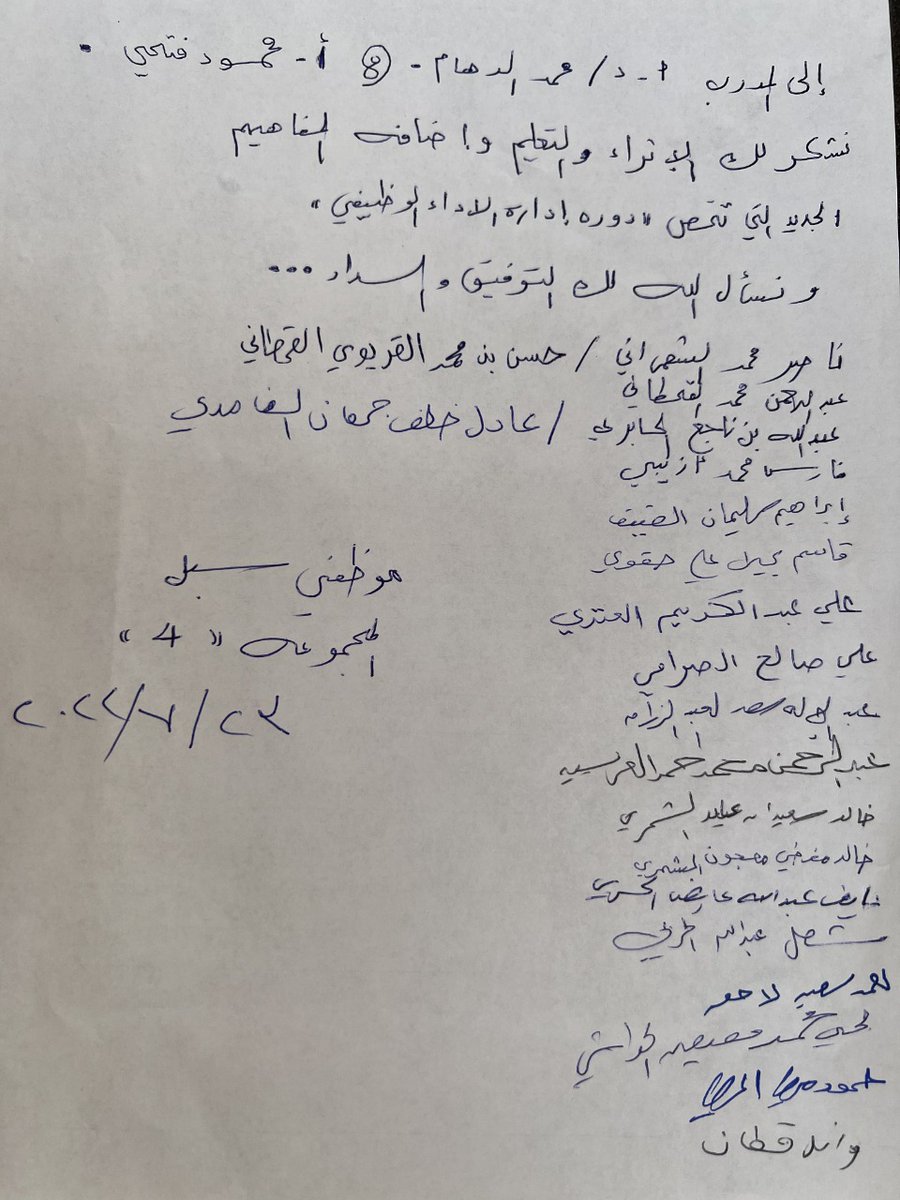 إلى المدرب أ-د/محمد الدهام - & أ- محمود فتحي .
نشكر لك الإثراء والتعليم وإضافه المفاهيم
الجديد التي تخص "دوره إدارة الاداء الوظيفي"
ونسأل الله لك التوفيق والسداد ...
ناصر محمد الشهراني / حسن بن محمد القريوي القحطاني
عبدالرحمن محمد القحطاني
عبدالله بن ناجع الجابري / عادل خلف جمعان الغامدي
فارس محمد
إبراهيم سليمان الضيف
قاسم علي حقوي
علي عبدالكريم العنزي
علي صالح الصرامي
عبدالإله سعد
عبدالرحمن محمد احمد العريسي
خالد الشمري
خالد الشمري
نايف عبدالله عايض
مشعل عبدالله الحربي
احمد سعيد
محمد
قطان
موظفي سبل
المجموعه "4"
٢٠٢٢/٦/٢٣